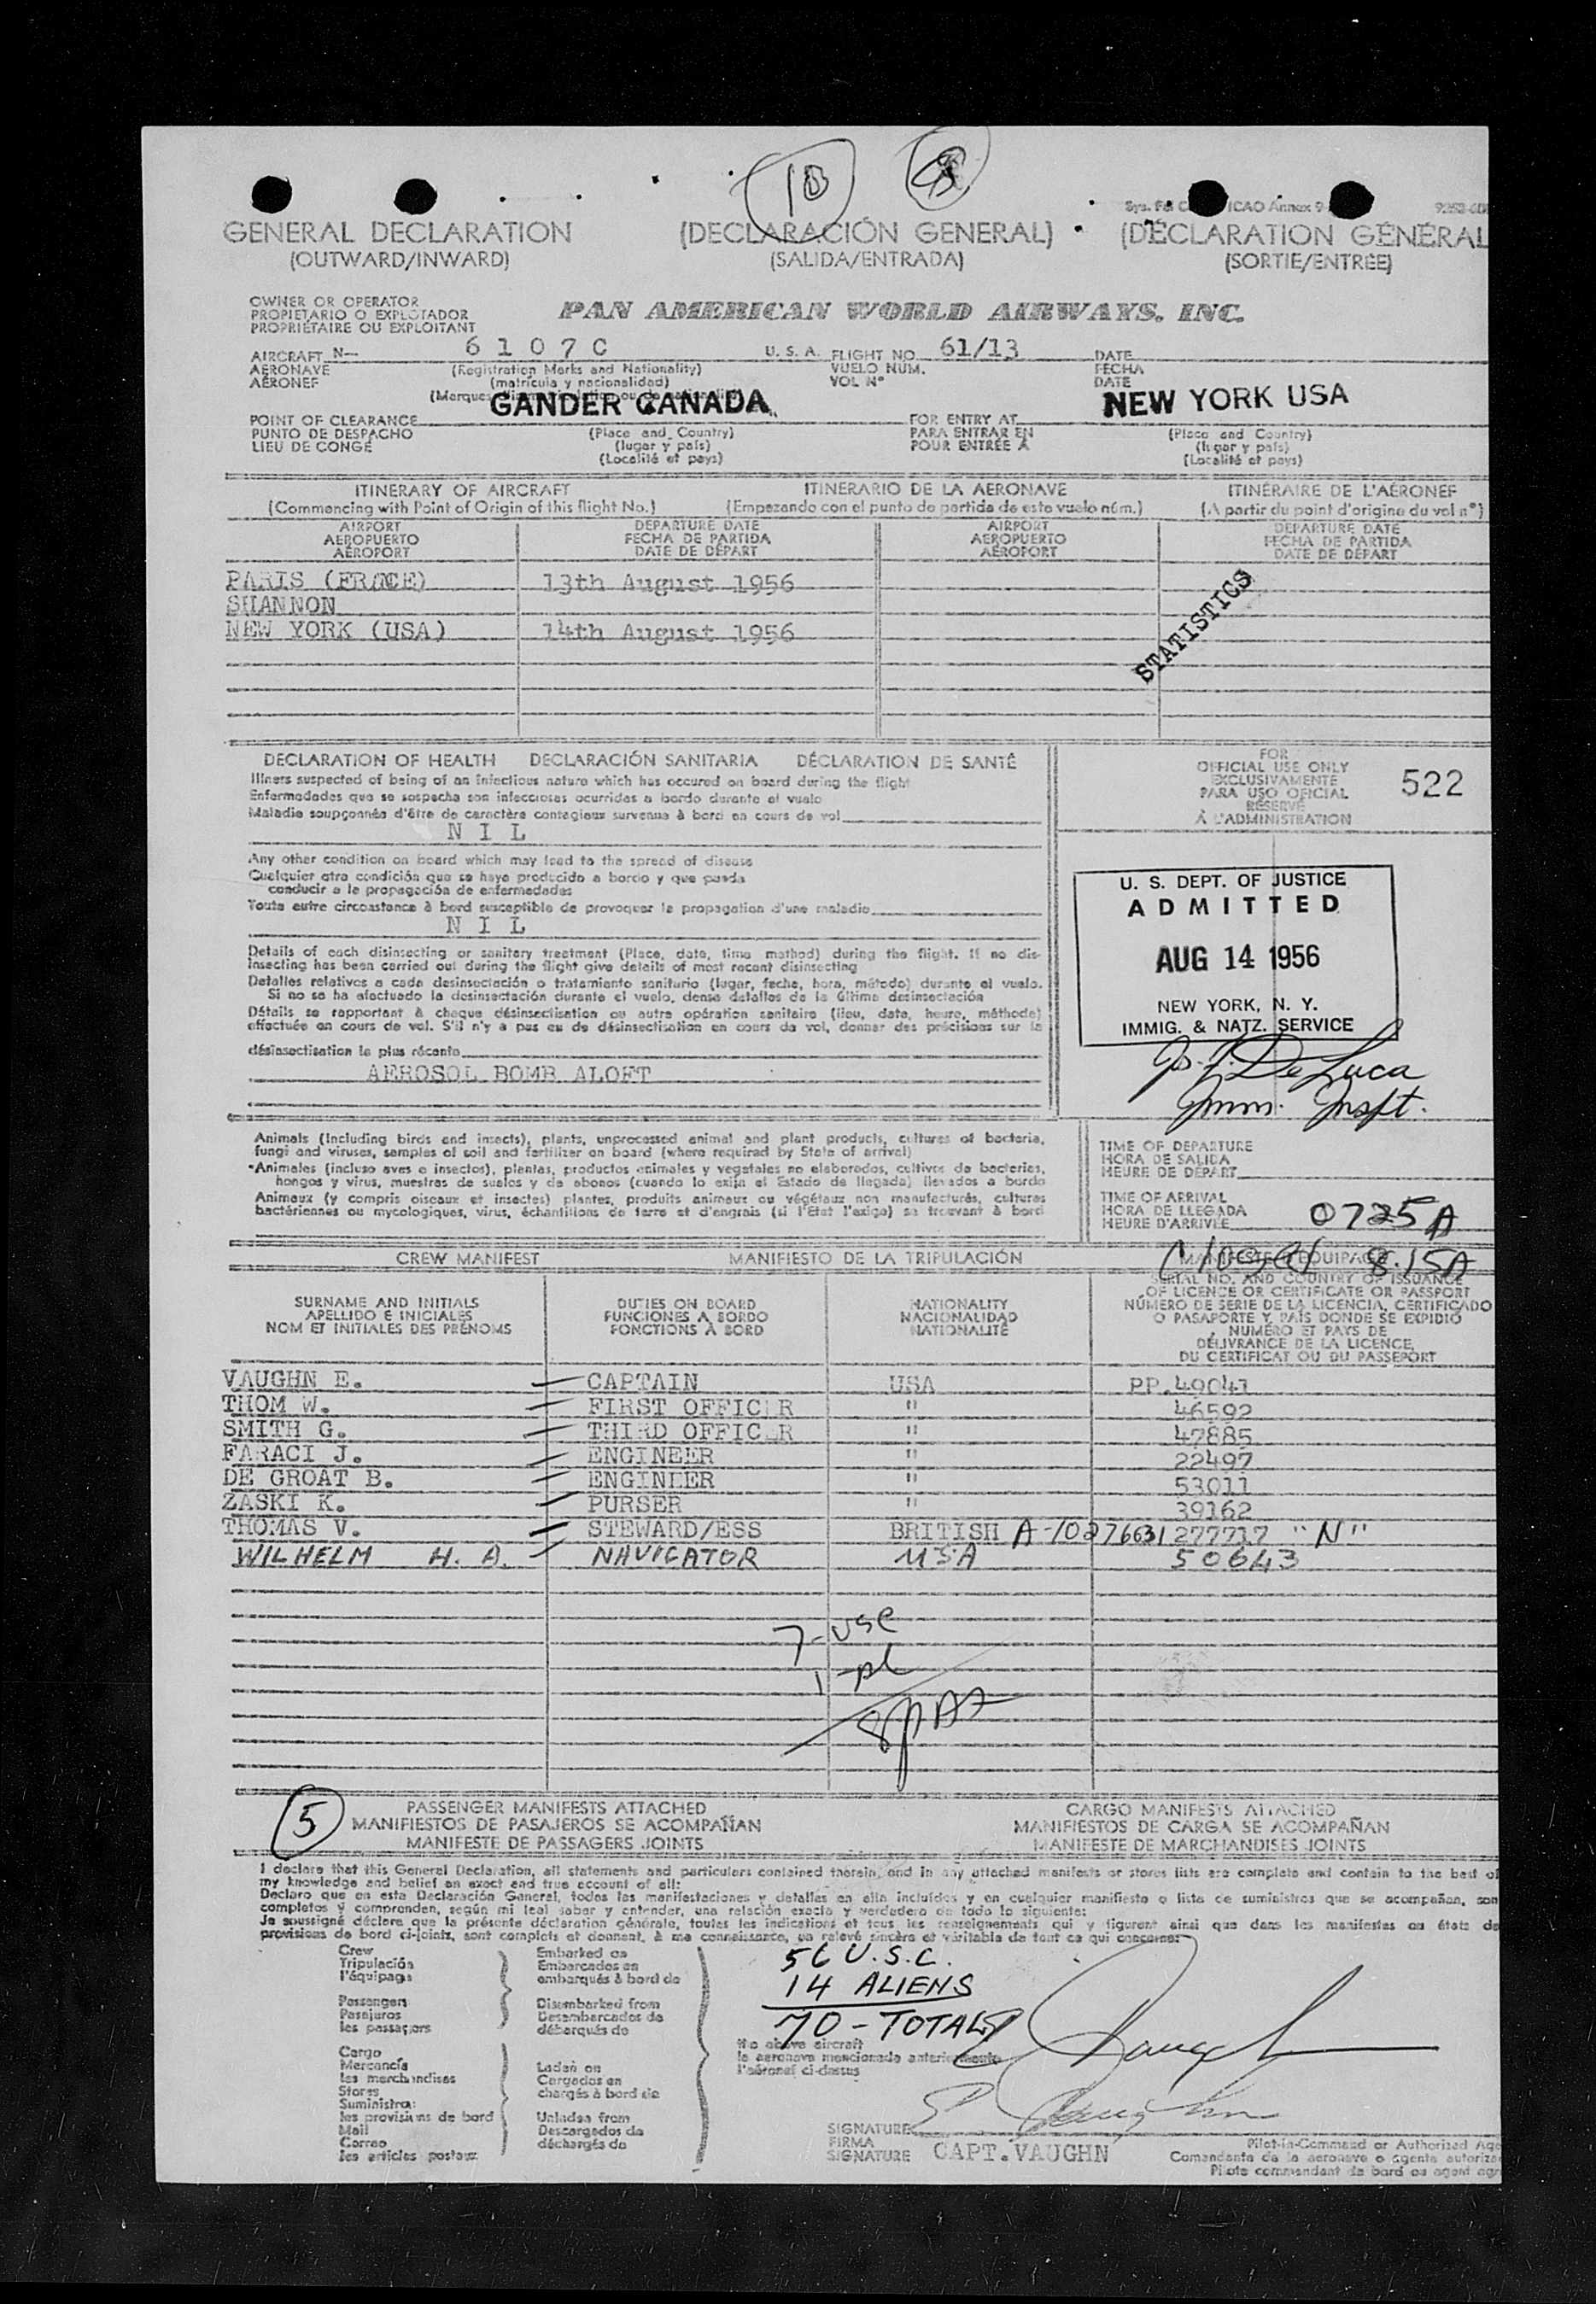 10
Sys. Fd C ICAO Annex 9-
GENERAL DECLARATION (DECLARACIÓN GENERAL) (DÉCLARATION GÉNÉRAL
(OUTWARD/INWARD) (SALIDA/ENTRADA) (SORTIE/ENTRÉE)
OWNER OR OPERATOR
PROPIETARIO O EXPLOTADOR
PROPRIÉTAIRE OU EXPLOITANT
PAN AMERICAN WORLD AIRWAYS. INC.
AIRCRAFT N— 6 1 0 7 C U. S. A. FLIGHT NO. 61/13 DATE
AERONAVE (Registration Marks and Nationality) VUELO NUM. FECHA
AÉRONEF (matrícula y nacionalidad) VOL Nº DATE
(Marques
GANDER CANADA NEW YORK USA
POINT OF CLEARANCE FOR ENTRY AT
PUNTO DE DESPACHO (Place and Country) PARA ENTRAR EN (Place and Country)
LIEU DE CONGÉ (lugar y país) POUR ENTRÉE À (lugar y país)
(Localité et pays) (Localité et pays)
ITINERARY OF AIRCRAFT ITINERARIO DE LA AERONAVE ITINÉRAIRE DE L'AÉRONEF
(Commencing with Point of Origin of this flight No.) (Empezando con el punto de partida de este vuelo núm.) (A partir du point d'origine du vol nº)
AIRPORT DEPARTURE DATE AIRPORT DEPARTURE DATE
AEROPUERTO FECHA DE PARTIDA AEROPUERTO FECHA DE PARTIDA
AÉROPORT DATE DE DÉPART AÉROPORT DATE DE DÉPART
PARIS (FRANCE) 13th August 1956
SHANNON
NEW YORK (USA) 14th August 1956
STATISTICS
DECLARATION OF HEALTH DECLARACIÓN SANITARIA DÉCLARATION DE SANTÉ
Illness suspected of being of an infectious nature which has occured on board during the flight
Enfermedades que se sospecha son infecciosas ocurridas a bordo durante el vuelo
Maladie soupçonnée d'être de caractère contagieux survenue à bord en cours de vol
N I L
Any other condition on board which may lead to the spread of disease
Cualquier otra condición que se haya producido a bordo y que pueda
conducir a la propagación de enfermedades
Toute autre circonstance à bord susceptible de provoquer la propagation d'une maladie
N I L
Details of each disinsecting or sanitary treatment (Place, date, time method) during the flight. If no dis-
insecting has been carried out during the flight give details of most recent disinsecting
Detalles relativos a cada desinsectación o tratamiento sanitario (lugar, fecha, hora, método) durante el vuelo.
Si no se ha efectuado la desinsectación durante el vuelo, dense detalles de la última desinsectación
Détails se rapportant à chaque désinsectisation ou autre opération sanitaire (lieu, date, heure, méthode)
effectuée en cours de vol. S'il n'y a pas eu de désinsectisation en cours de vol, donner des précisions sur la
désinsectisation la plus récente
AEROSOL BOMB ALOFT
FOR
OFFICIAL USE ONLY
EXCLUSIVAMENTE
PARA USO OFICIAL
RÉSERVÉ
À L'ADMINISTRATION
522
U. S. DEPT. OF JUSTICE
ADMITTED
AUG 14 1956
NEW YORK, N. Y.
IMMIG. & NATZ. SERVICE
Jos. J. De Luca
Imm. Inspt.
Animals (Including birds and insects), plants, unprocessed animal and plant products, cultures of bacteria,
fungi and viruses, samples of soil and fertilizer on board (where required by State of arrival)
Animales (incluso aves e insectos), plantas, productos animales y vegetales no elaborados, cultivos de bacterias,
hongos y virus, muestras de suelos y de abonos (cuando lo exija el Estado de llegada) llevados a bordo
Animaux (y compris oiseaux et insectes) plantes, produits animaux ou végétaux non manufacturés, cultures
bactériennes ou mycologiques, virus, échantillons de terre et d'engrais (si l'Etat l'exige) se trouvant à bord
TIME OF DEPARTURE
HORA DE SALIDA
HEURE DE DÉPART
TIME OF ARRIVAL
HORA DE LLEGADA
HEURE D'ARRIVÉE
0725A
8.15A
CREW MANIFEST MANIFIESTO DE LA TRIPULACIÓN
SURNAME AND INITIALS
APELLIDO E INICIALES
NOM ET INITIALES DES PRÉNOMS
DUTIES ON BOARD
FUNCIONES A BORDO
FONCTIONS À BORD
NATIONALITY
NACIONALIDAD
NATIONALITÉ
SERIAL NO. AND COUNTRY OF ISSUANCE
OF LICENCE OR CERTIFICATE OR PASSPORT
NÚMERO DE SERIE DE LA LICENCIA, CERTIFICADO
O PASAPORTE Y PAÍS DONDE SE EXPIDIÓ
NUMÉRO ET PAYS DE
DÉLIVRANCE DE LA LICENCE,
DU CERTIFICAT OU DU PASSEPORT
VAUGHN E. CAPTAIN USA PP.49041
THOM W. FIRST OFFICER " 46592
SMITH G. THIRD OFFICER " 47885
FARACI J. ENGINEER " 22497
DE GROAT B. ENGINEER " 53011
ZASKI K. PURSER " 39162
THOMAS V. STEWARD/ESS BRITISH A-10276631 277717 "N"
WILHELM H. A. NAVIGATOR USA 50643
7-USC
1-
5
PASSENGER MANIFESTS ATTACHED CARGO MANIFESTS ATTACHED
MANIFIESTOS DE PASAJEROS SE ACOMPAÑAN MANIFIESTOS DE CARGA SE ACOMPAÑAN
MANIFESTE DE PASSAGERS JOINTS MANIFESTE DE MARCHANDISES JOINTS
I declare that this General Declaration, all statements and particulars contained therein, and in any attached manifests or stores lists are complete and contain to the best of
my knowledge and belief an exact and true account of all:
Declaro que en esta Declaración General, todas las manifestaciones y detalles en ella incluídos y en cualquier manifiesto o lista de suministros que se acompañan, son
completos y comprenden, según mi leal saber y entender, una relación exacta y verdadera de todo lo siguiente:
Je soussigné déclare que la présente déclaration générale, toutes les indications et tous les renseignements qui y figurent ainsi que dans les manifestes ou états de
provisions de bord ci-joints, sont complets et donnent, à ma connaissance, un relevé sincère et véritable de tout ce qui concerne:
Crew
Tripulación
l'équipage
Passengers
Pasajeros
les passagers
Cargo
Mercancía
les marchandises
Stores
Suministros
les provisions de bord
Mail
Correo
les articles postaux
Embarked on
Embarcados en
embarqués à bord de
Disembarked from
Desembarcados de
débarqués de
Laden on
Cargados en
chargés à bord de
Unladen from
Descargados de
déchargés de
56 U.S.C.
14 ALIENS
70 - TOTAL
the above aircraft
la aeronave mencionada anteriormente
l'aéronef ci-dessus
SIGNATURE
FIRMA
SIGNATURE
CAPT. VAUGHN
Pilot-in-Command or Authorized Age
Comandante de la aeronave o agente autoriza
Pilote commandant de bord ou agent agr